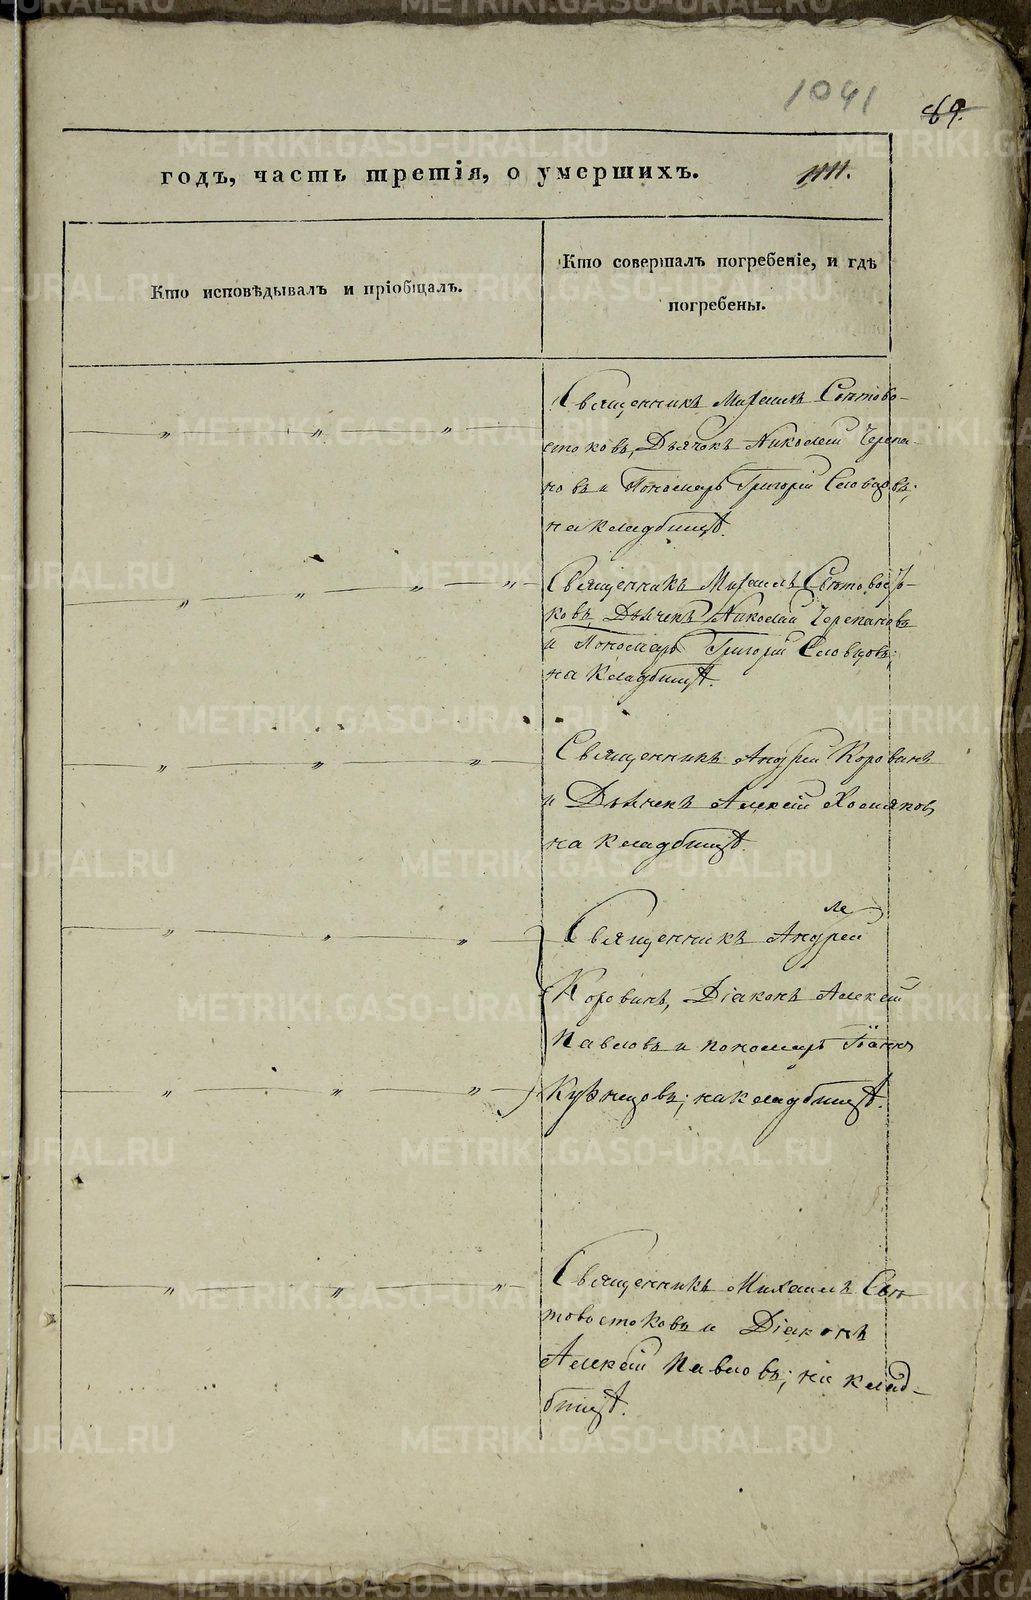 1041
89.
годъ, часть третія, о умершихъ.
Кто исповѣдывалъ и пріобщалъ.
Кто совершалъ погребеніе, и гдѣ
погребены.
Священникъ Михаилъ Свѣтово-
стоковъ, Дьячекъ Николай Черепа-
новъ и Пономарь Григорій Словцовъ;
на кладбищѣ.
Священникъ Михаилъ Свѣтовосто-
ковъ, Дьячекъ Николай Черепановъ
и Пономарь Григорій Словцовъ;
на кладбищѣ.
Священникъ Андрей Коровинъ
и Дьячекъ Алексій Хомяковъ
на кладбищѣ.
Священникъ Андрей
Коровинъ, Діаконъ Алексій
Павловъ и пономарь Іоаннъ
Кузнецовъ; на кладбищѣ.
Священникъ Михаилъ Свѣ-
товостоковъ и Діаконъ
Алексій Павловъ; на клад-
бищѣ.
METRIKI.GASO-URAL.RU